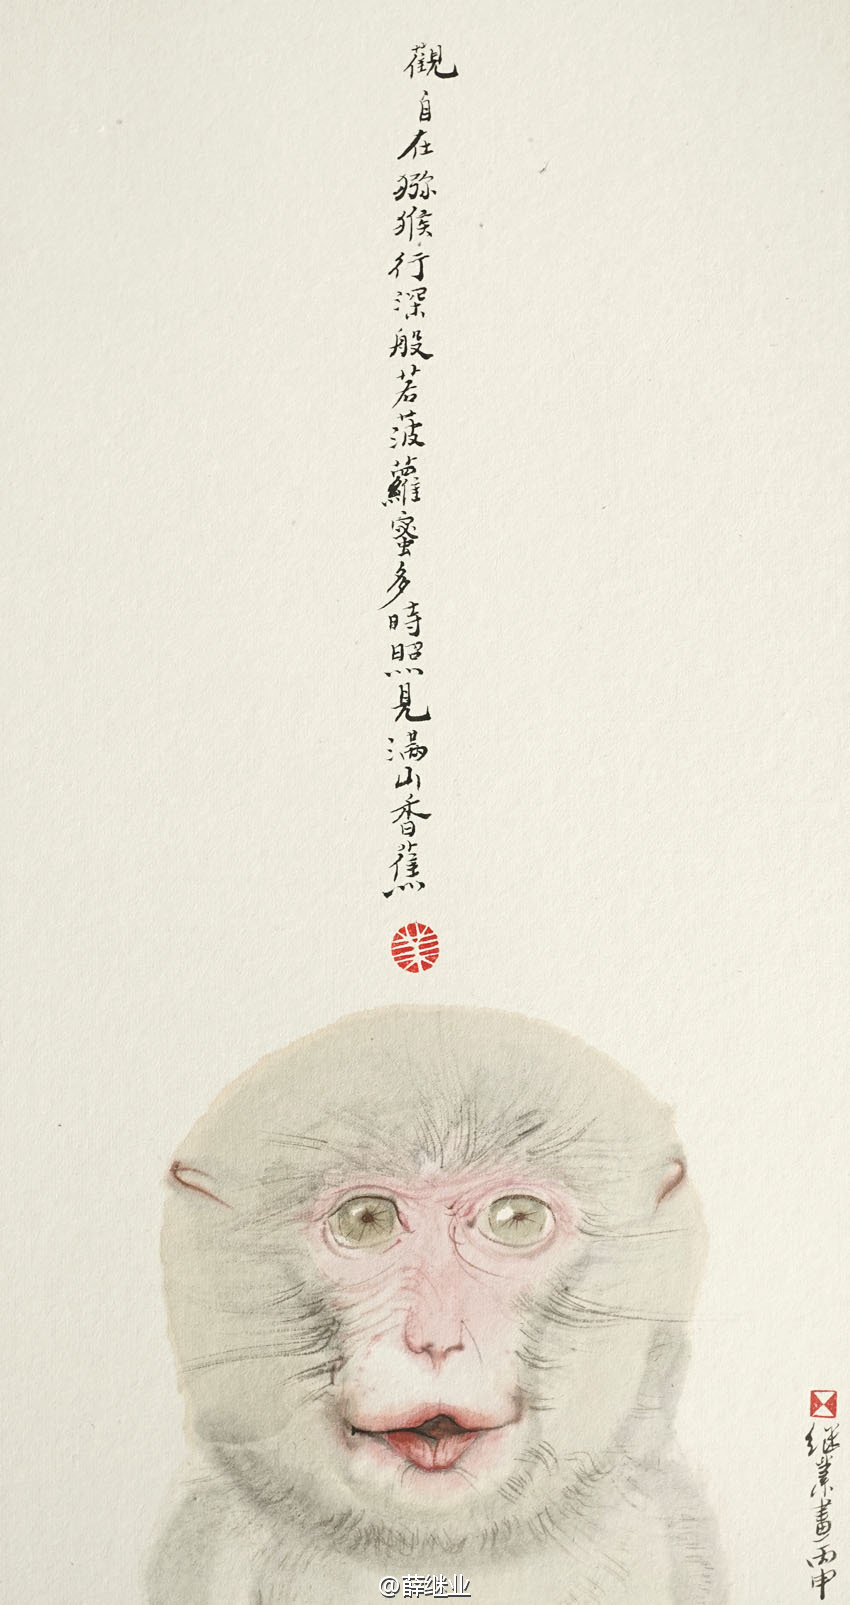 觀自在獼猴行深般若菠蘿蜜多時照見滿山香蕉
继業畫丙申
@薛继业